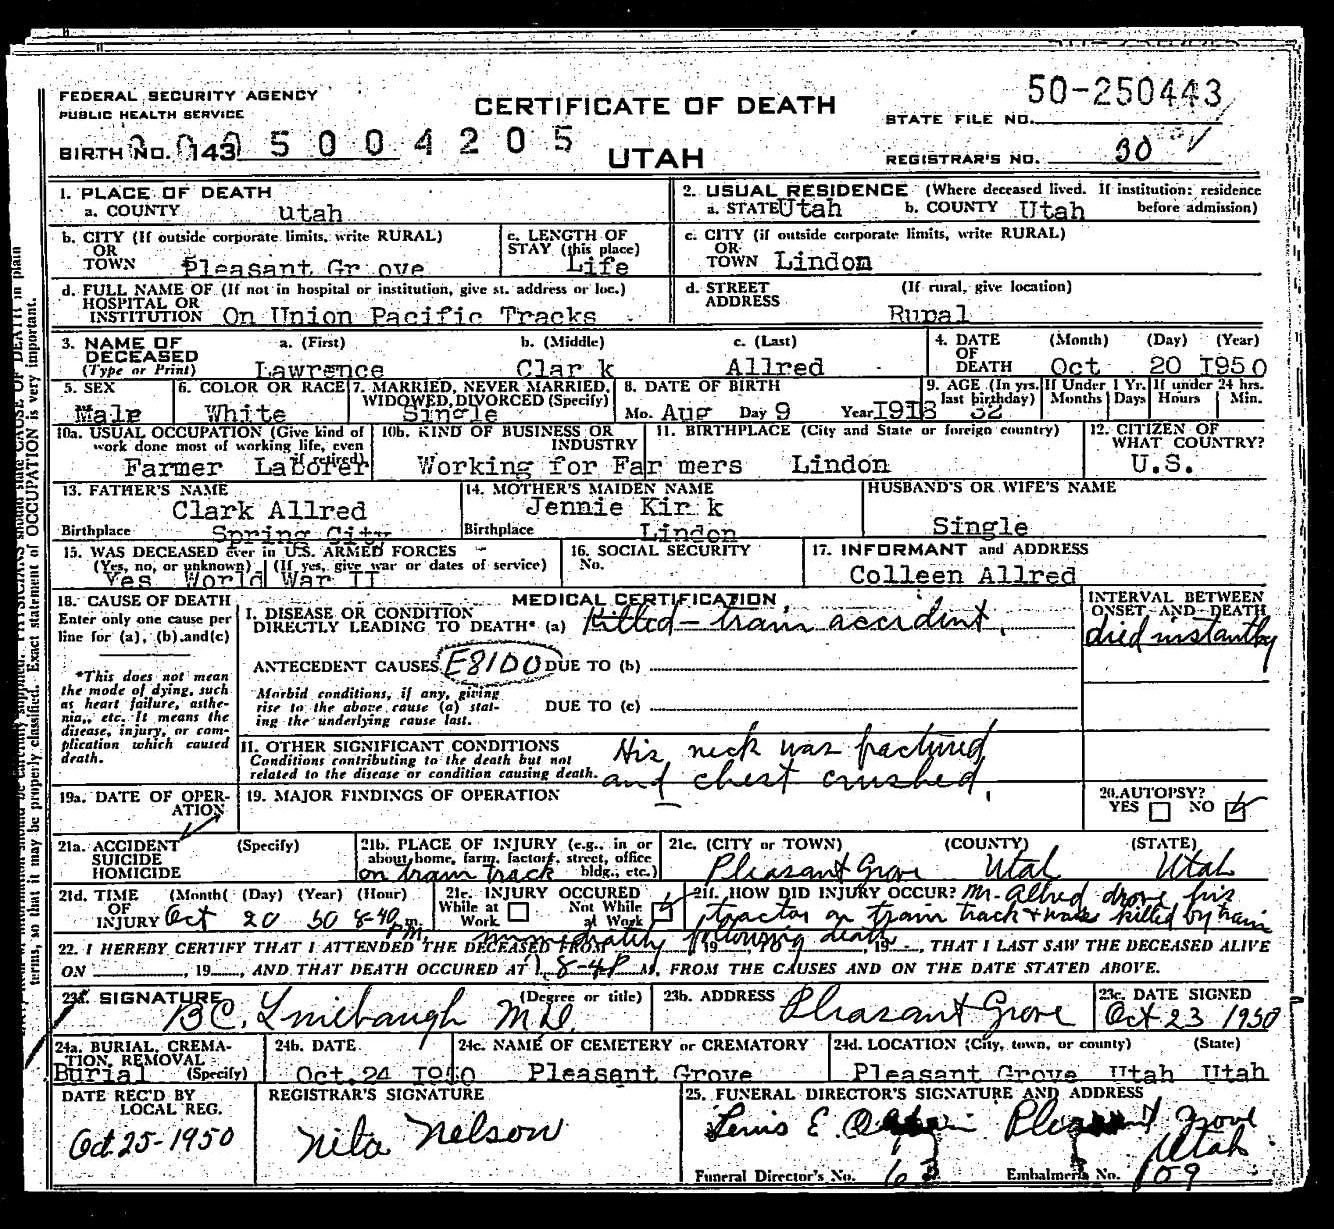 50-250443
FEDERAL SECURITY AGENCY
PUBLIC HEALTH SERVICE
CERTIFICATE OF DEATH
STATE FILE NO.
BIRTH NO. 143 5 0 0 4 2 0 5
UTAH
REGISTRAR'S NO. 30
1. PLACE OF DEATH
a. COUNTY Utah
2. USUAL RESIDENCE (Where deceased lived. If institution: residence before admission)
a. STATE Utah b. COUNTY Utah
b. CITY (If outside corporate limits, write RURAL) OR TOWN Pleasant Gr ove
c. LENGTH OF STAY (this place) Life
c. CITY (if outside corporate limits, write RURAL) OR TOWN Lindon
d. FULL NAME OF (If not in hospital or institution, give st. address or loc.) HOSPITAL OR INSTITUTION On Union Pacific Tracks
d. STREET ADDRESS (If rural, give location) Rural
3. NAME OF DECEASED (Type or Print) a. (First) Lawrence b. (Middle) Clar k c. (Last) Allred
4. DATE OF DEATH (Month) (Day) (Year) Oct 20 I950
5. SEX Male
6. COLOR OR RACE White
7. MARRIED, NEVER MARRIED, WIDOWED, DIVORCED (Specify) Single
8. DATE OF BIRTH Mo. Aug Day 9 Year I918
9. AGE (In yrs. last birthday) 32
If Under 1 Yr. Months Days
If under 24 hrs. Hours Min.
10a. USUAL OCCUPATION (Give kind of work done most of working life, even if retired) Farmer Laborer
10b. KIND OF BUSINESS OR INDUSTRY Working for Far mers
11. BIRTHPLACE (City and State or foreign country) Lindon
12. CITIZEN OF WHAT COUNTRY? U.S.
13. FATHER'S NAME Clark Allred
Birthplace Spring City
14. MOTHER'S MAIDEN NAME Jennie Kir k
Birthplace Lindon
HUSBAND'S OR WIFE'S NAME Single
15. WAS DECEASED ever in U.S. ARMED FORCES (Yes, no, or unknown) (If yes, give war or dates of service) Yes World War II
16. SOCIAL SECURITY No.
17. INFORMANT and ADDRESS Colleen Allred
18. CAUSE OF DEATH
Enter only one cause per line for (a), (b), and (c)
*This does not mean the mode of dying, such as heart failure, asthenia, etc. It means the disease, injury, or complication which caused death.
MEDICAL CERTIFICATION
I. DISEASE OR CONDITION DIRECTLY LEADING TO DEATH* (a) Killed - train accident.
INTERVAL BETWEEN ONSET AND DEATH died instantly
ANTECEDENT CAUSES E8100 DUE TO (b)
Morbid conditions, if any, giving rise to the above cause (a) stating the underlying cause last. DUE TO (c)
II. OTHER SIGNIFICANT CONDITIONS His neck was fractured
Conditions contributing to the death but not related to the disease or condition causing death. and chest crushed.
19a. DATE OF OPERATION
19. MAJOR FINDINGS OF OPERATION
20. AUTOPSY? YES NO
21a. ACCIDENT SUICIDE HOMICIDE (Specify)
21b. PLACE OF INJURY (e.g., in or about home, farm, factory, street, office bldg., etc.) on train track
21c. (CITY or TOWN) (COUNTY) (STATE) Pleasant Grove Utah Utah
21d. TIME OF INJURY (Month) (Day) (Year) (Hour) Oct 20 50 8-40 p m.
21e. INJURY OCCURED While at Work Not While at Work
21f. HOW DID INJURY OCCUR? Mr. Allred drove his tractor on train track & was killed by train
22. I HEREBY CERTIFY THAT I ATTENDED THE DECEASED FROM immediately following death, 19, TO, 19, THAT I LAST SAW THE DECEASED ALIVE
ON, 19, AND THAT DEATH OCCURED AT 8-4 P M, FROM THE CAUSES AND ON THE DATE STATED ABOVE.
SIGNATURE (Degree or title) B C. Linebaugh M D.
23b. ADDRESS Pleasant Grove
23c. DATE SIGNED Oct 23 1950
24a. BURIAL, CREMATION, REMOVAL (Specify) Burial
24b. DATE Oct. 24 I9
24c. NAME OF CEMETERY or CREMATORY Pleasant Grove
24d. LOCATION (City, town, or county) (State) Pleasant Grove Utah Utah
DATE REC'D BY LOCAL REG. Oct 25-1950
REGISTRAR'S SIGNATURE Nita Nelson
25. FUNERAL DIRECTOR'S SIGNATURE AND ADDRESS E. Pleasant Grove Utah
Funeral Director's No. 63
Embalmer's No. 109